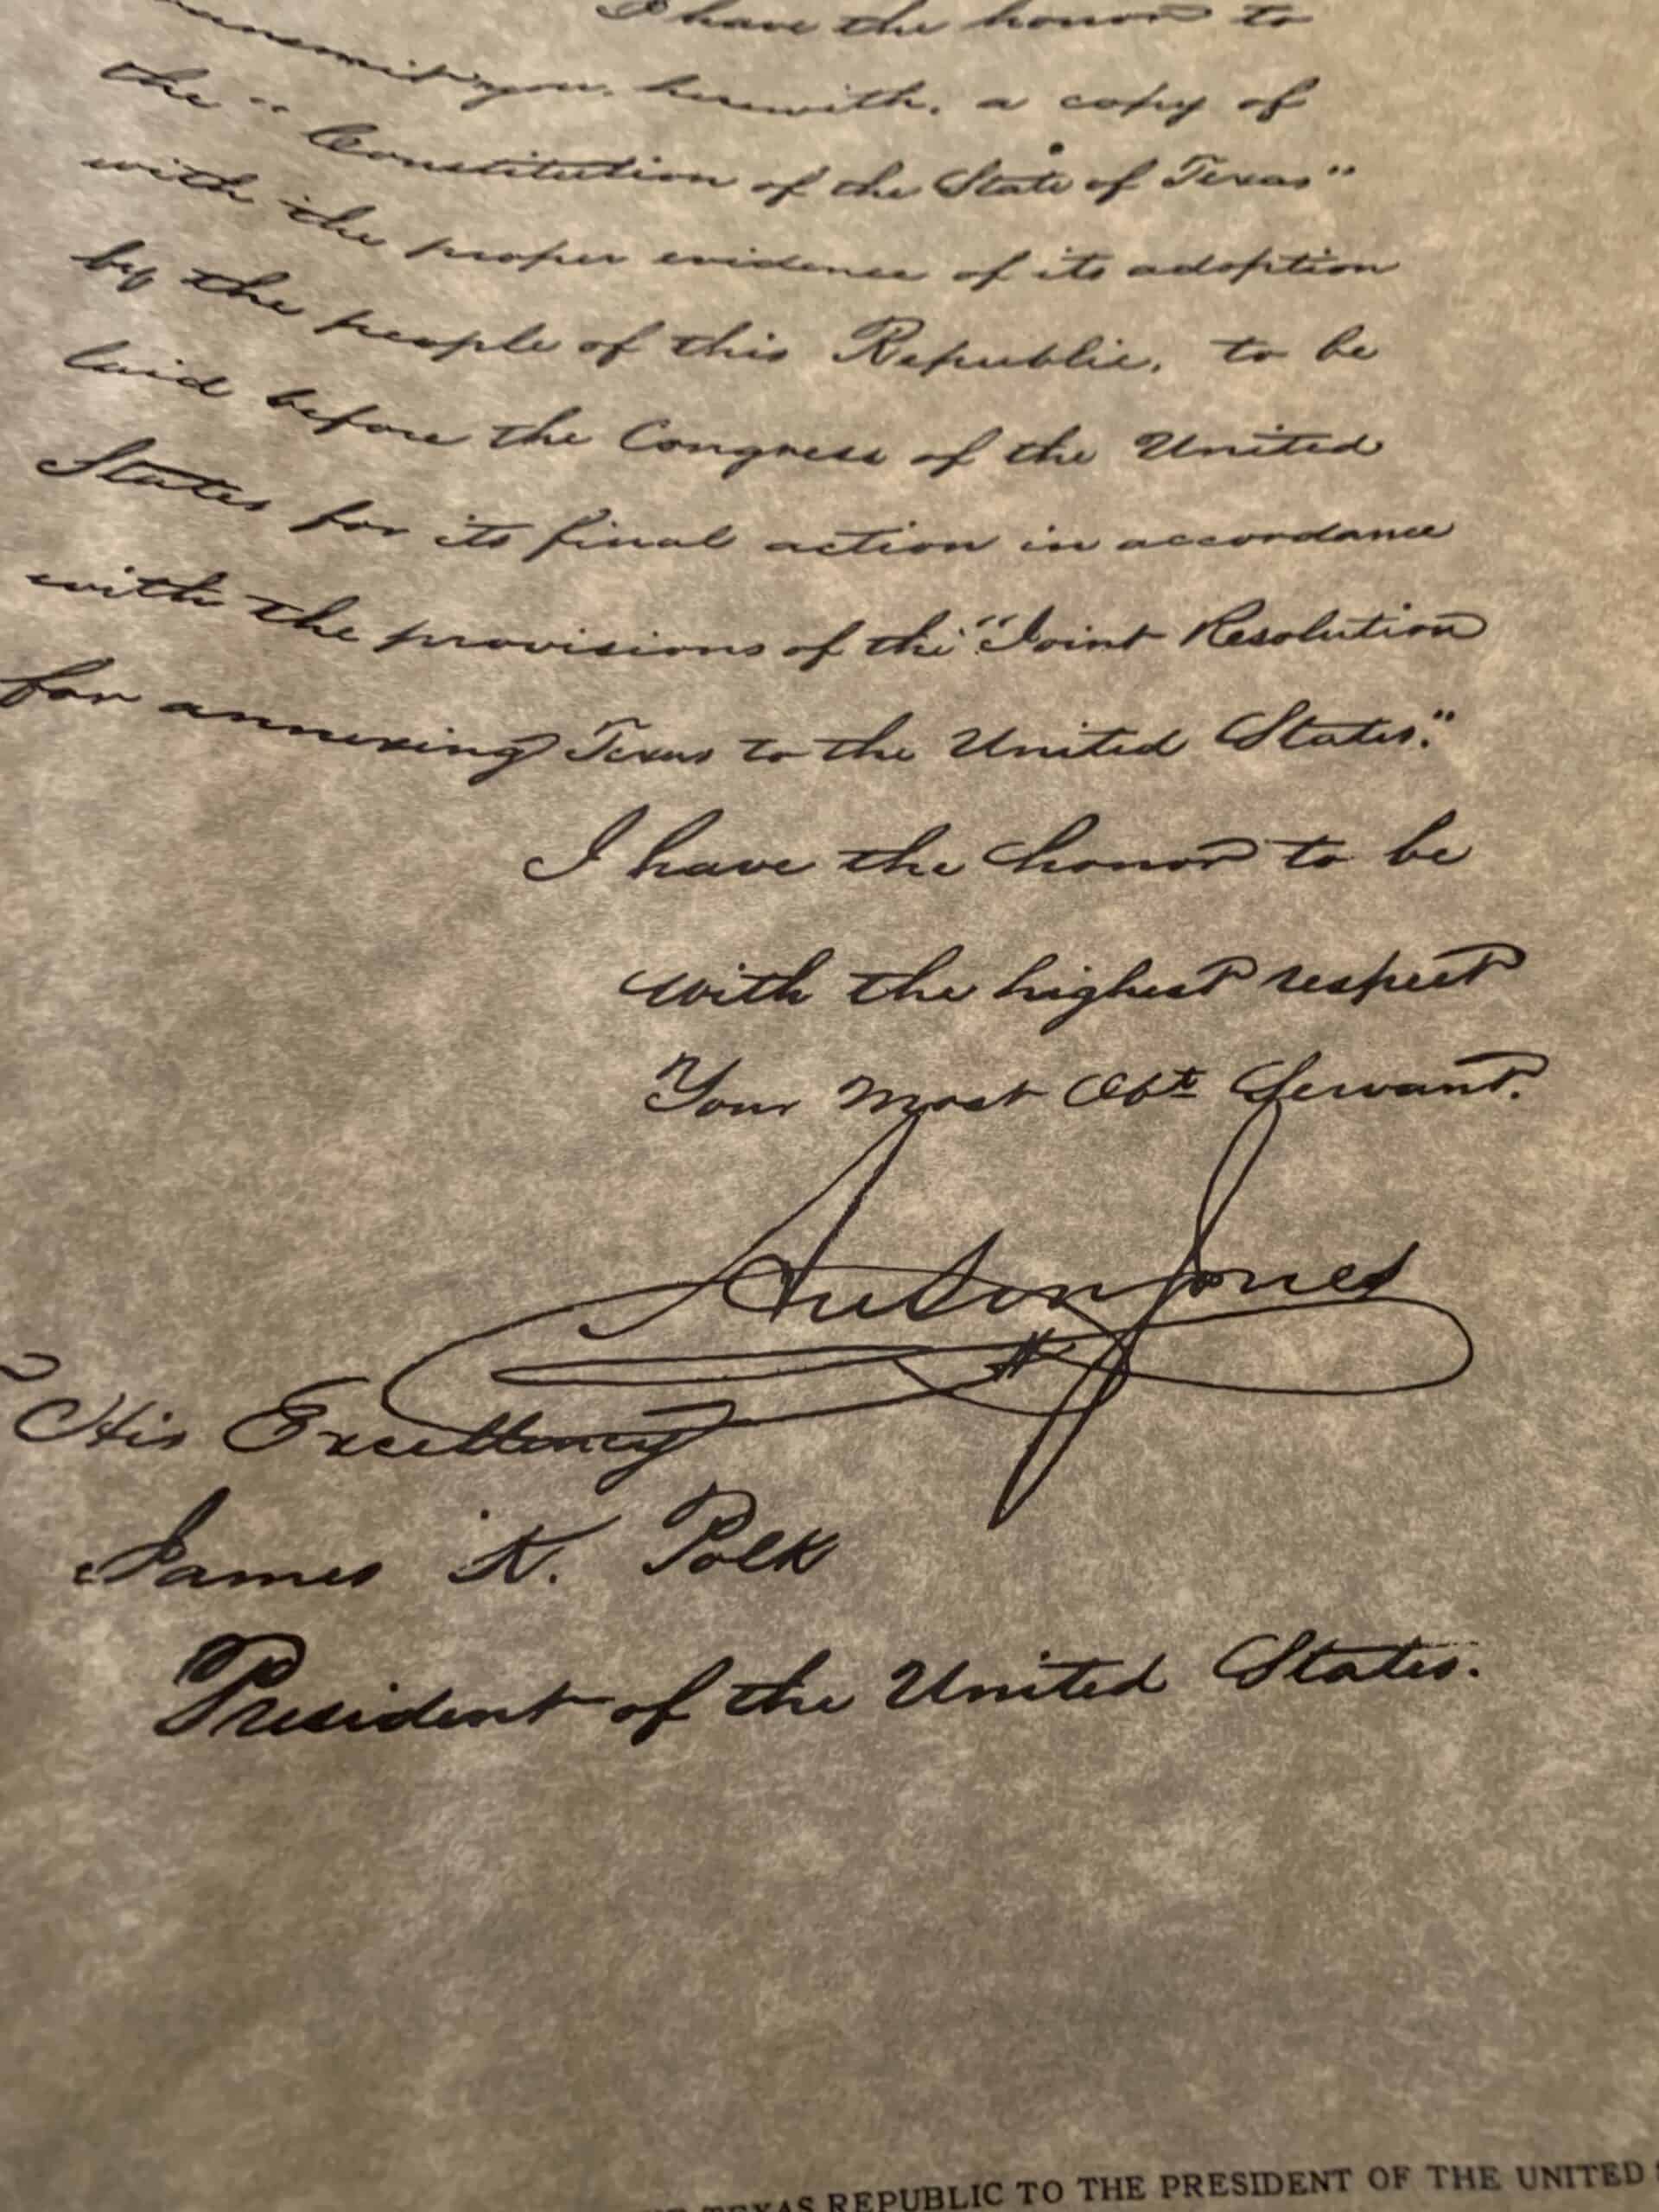 I have the honor to
transmit you, herewith, a copy of
the "Constitution of the State of Texas"
with the proper evidence of its adoption
by the people of this Republic, to be
laid before the Congress of the United
States for its final action in accordance
with the provisions of the "Joint Resolution
for annexing Texas to the United States."
I have the honor to be
with the highest respect
Your Most Obt Servant.
Anson Jones
His Excellency
James K. Polk
President of the United States.
TEXAS REPUBLIC TO THE PRESIDENT OF THE UNITED